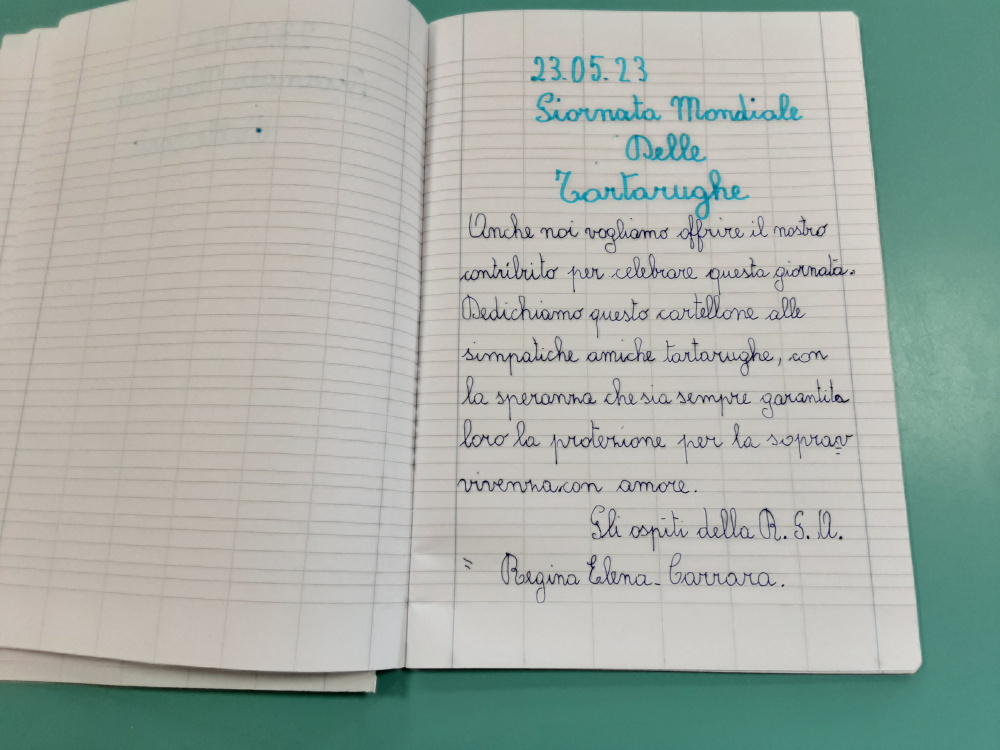 23.05.23
Giornata Mondiale
Delle
Tartarughe
Anche noi vogliamo offrire il nostro
contribuito per celebrare questa giornata.
Dedichiamo questo cartellone alle
simpatiche amiche tartarughe, con
la speranza che sia sempre garantita
loro la protezione per la soprav
vivenza con amore.
Gli ospiti della R.S.A.
= Regina Elena - Carrara.